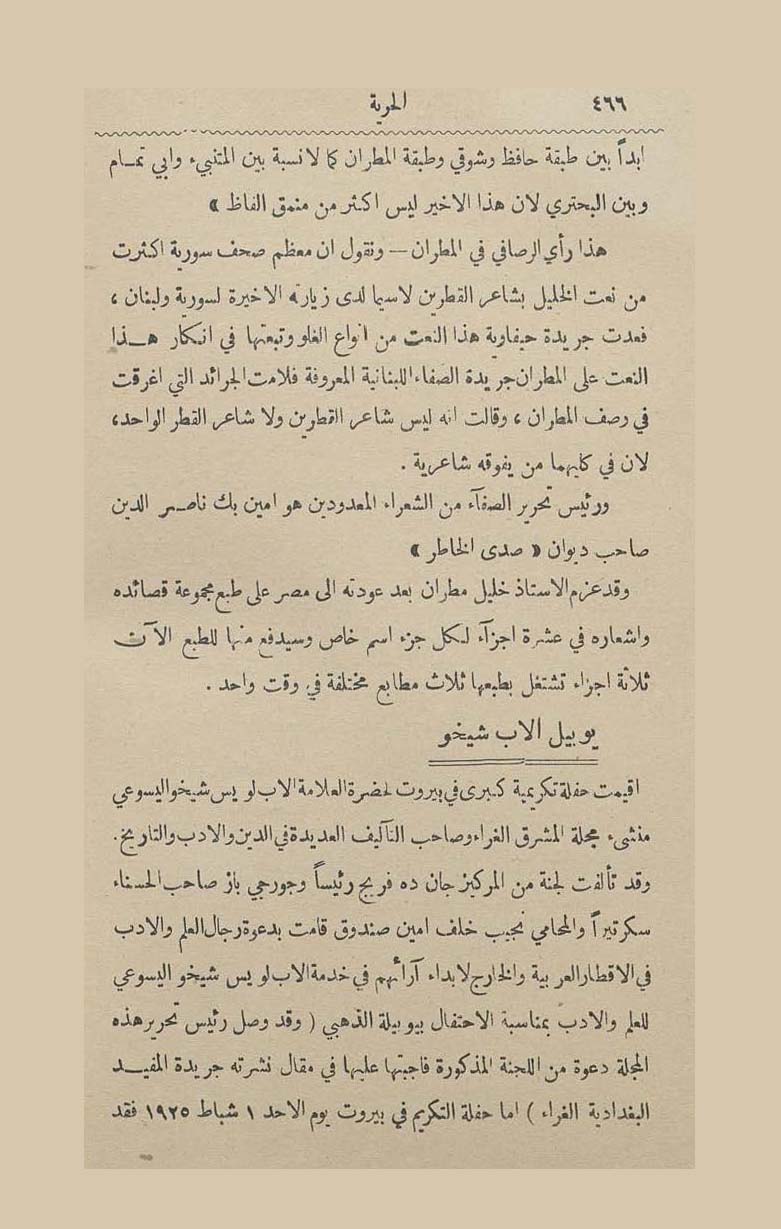 ٤٦٦ الحرية
ابداً بين طبقة حافظ وشوقي وطبقة المطران كما لا نسبة بين المتنبيء وابي تمـام
وبين البحتري لان هذا الاخير ليس اكثر من منمق الفاظ »
هذا رأي الرصافي في المطران — ونقول ان معظم صحف سورية اكثرت
من نعت الخليل بشاعر القطرين لاسيما لدى زيارته الاخيرة لسورية ولبنان ،
فعدت جريدة حيفاوية هذا النعت من انواع الغلو وتبعتها في انكار هـذا
النعت على المطران جريدة الصفاء اللبنانية المعروفة فلامت الجرائد التي اغرقت
في رصف المطران ، وقالت انه ليس شاعر القطرين ولا شاعر القطر الواحد،
لان في كليهما من يفوقه شاعرية .
ورئيس تحرير الصفآء من الشعراء المعدودين هو امين بك ناصر الدين
صاحب ديوان « صدى الخاطر »
وقد عزم الاستاذ خليل مطران بعد عودته الى مصر على طبع مجموعة قصائده
واشعاره في عشرة اجزآء لكل جزء اسم خاص وسيدفع منها للطبع الآن
ثلاثة اجزاء تشتغل بطبعها ثلاث مطابع مختلفة في وقت واحد .
يوبيل الاب شيخو
اقيمت حفلة تكريمية كبرى في بيروت لحضرة العلامة الاب لويس شيخو اليسوعي
منشىء مجلة المشرق الغراء وصاحب التآليف العديدة في الدين والادب والتاريخ.
وقد تألفت لجنة من المركيز جان ده فريج رئيساً وجورجي باز صاحب الحسناء
سكرتيراً والمحامي نجيب خلف امين صندوق قامت بدعوة رجال العلم والادب
في الاقطار العربية والخارج لابداء آرائهم في خدمة الاب لويس شيخو اليسوعي
للعلم والادب بمناسبة الاحتفال بيوبيلة الذهبي ( وقد وصل رئيس تحرير هذه
المجلة دعوة من اللجنة المذكورة فاجبتها عليها في مقال نشرته جريدة المفيـد
البغدادية الغراء ) اما حفلة التكريم في بيروت يوم الاحد ١ شباط ١٩٢٥ فقد